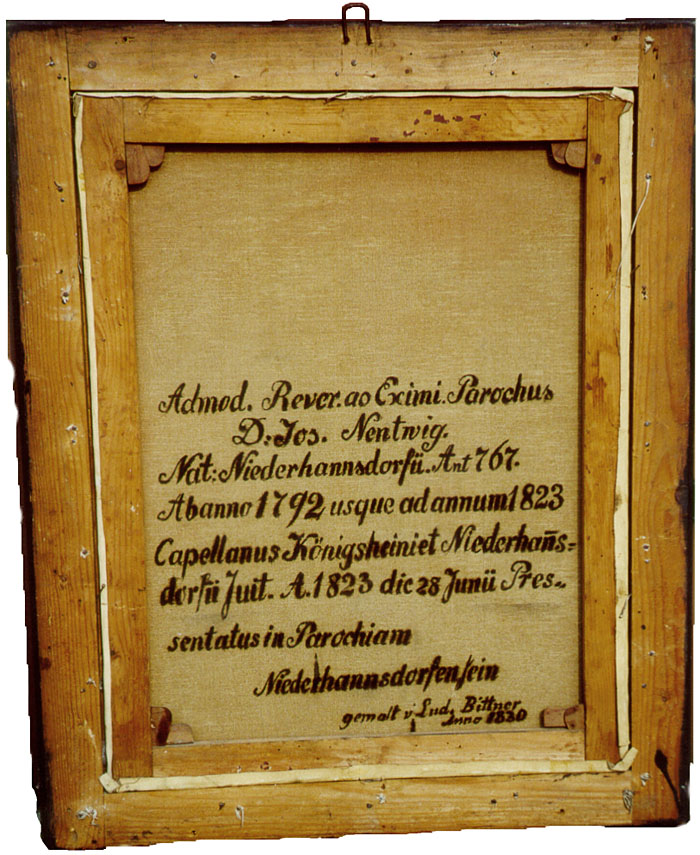 Admod. Rever. ao Eximi. Parochus
D: Jos. Nentwig.
Nat: Niederhannsdorfü. Ant 767.
Abanno 1792 usque ad annum 1823
Capellanus Königsheiniet Niederhan̄s-
dorfii fuit. A. 1823 dic 28 Junü Pres-
sentatus in Parochiam
Niederhannsdorfensein
gemalt v. Lud. Bittner
Anno 1830